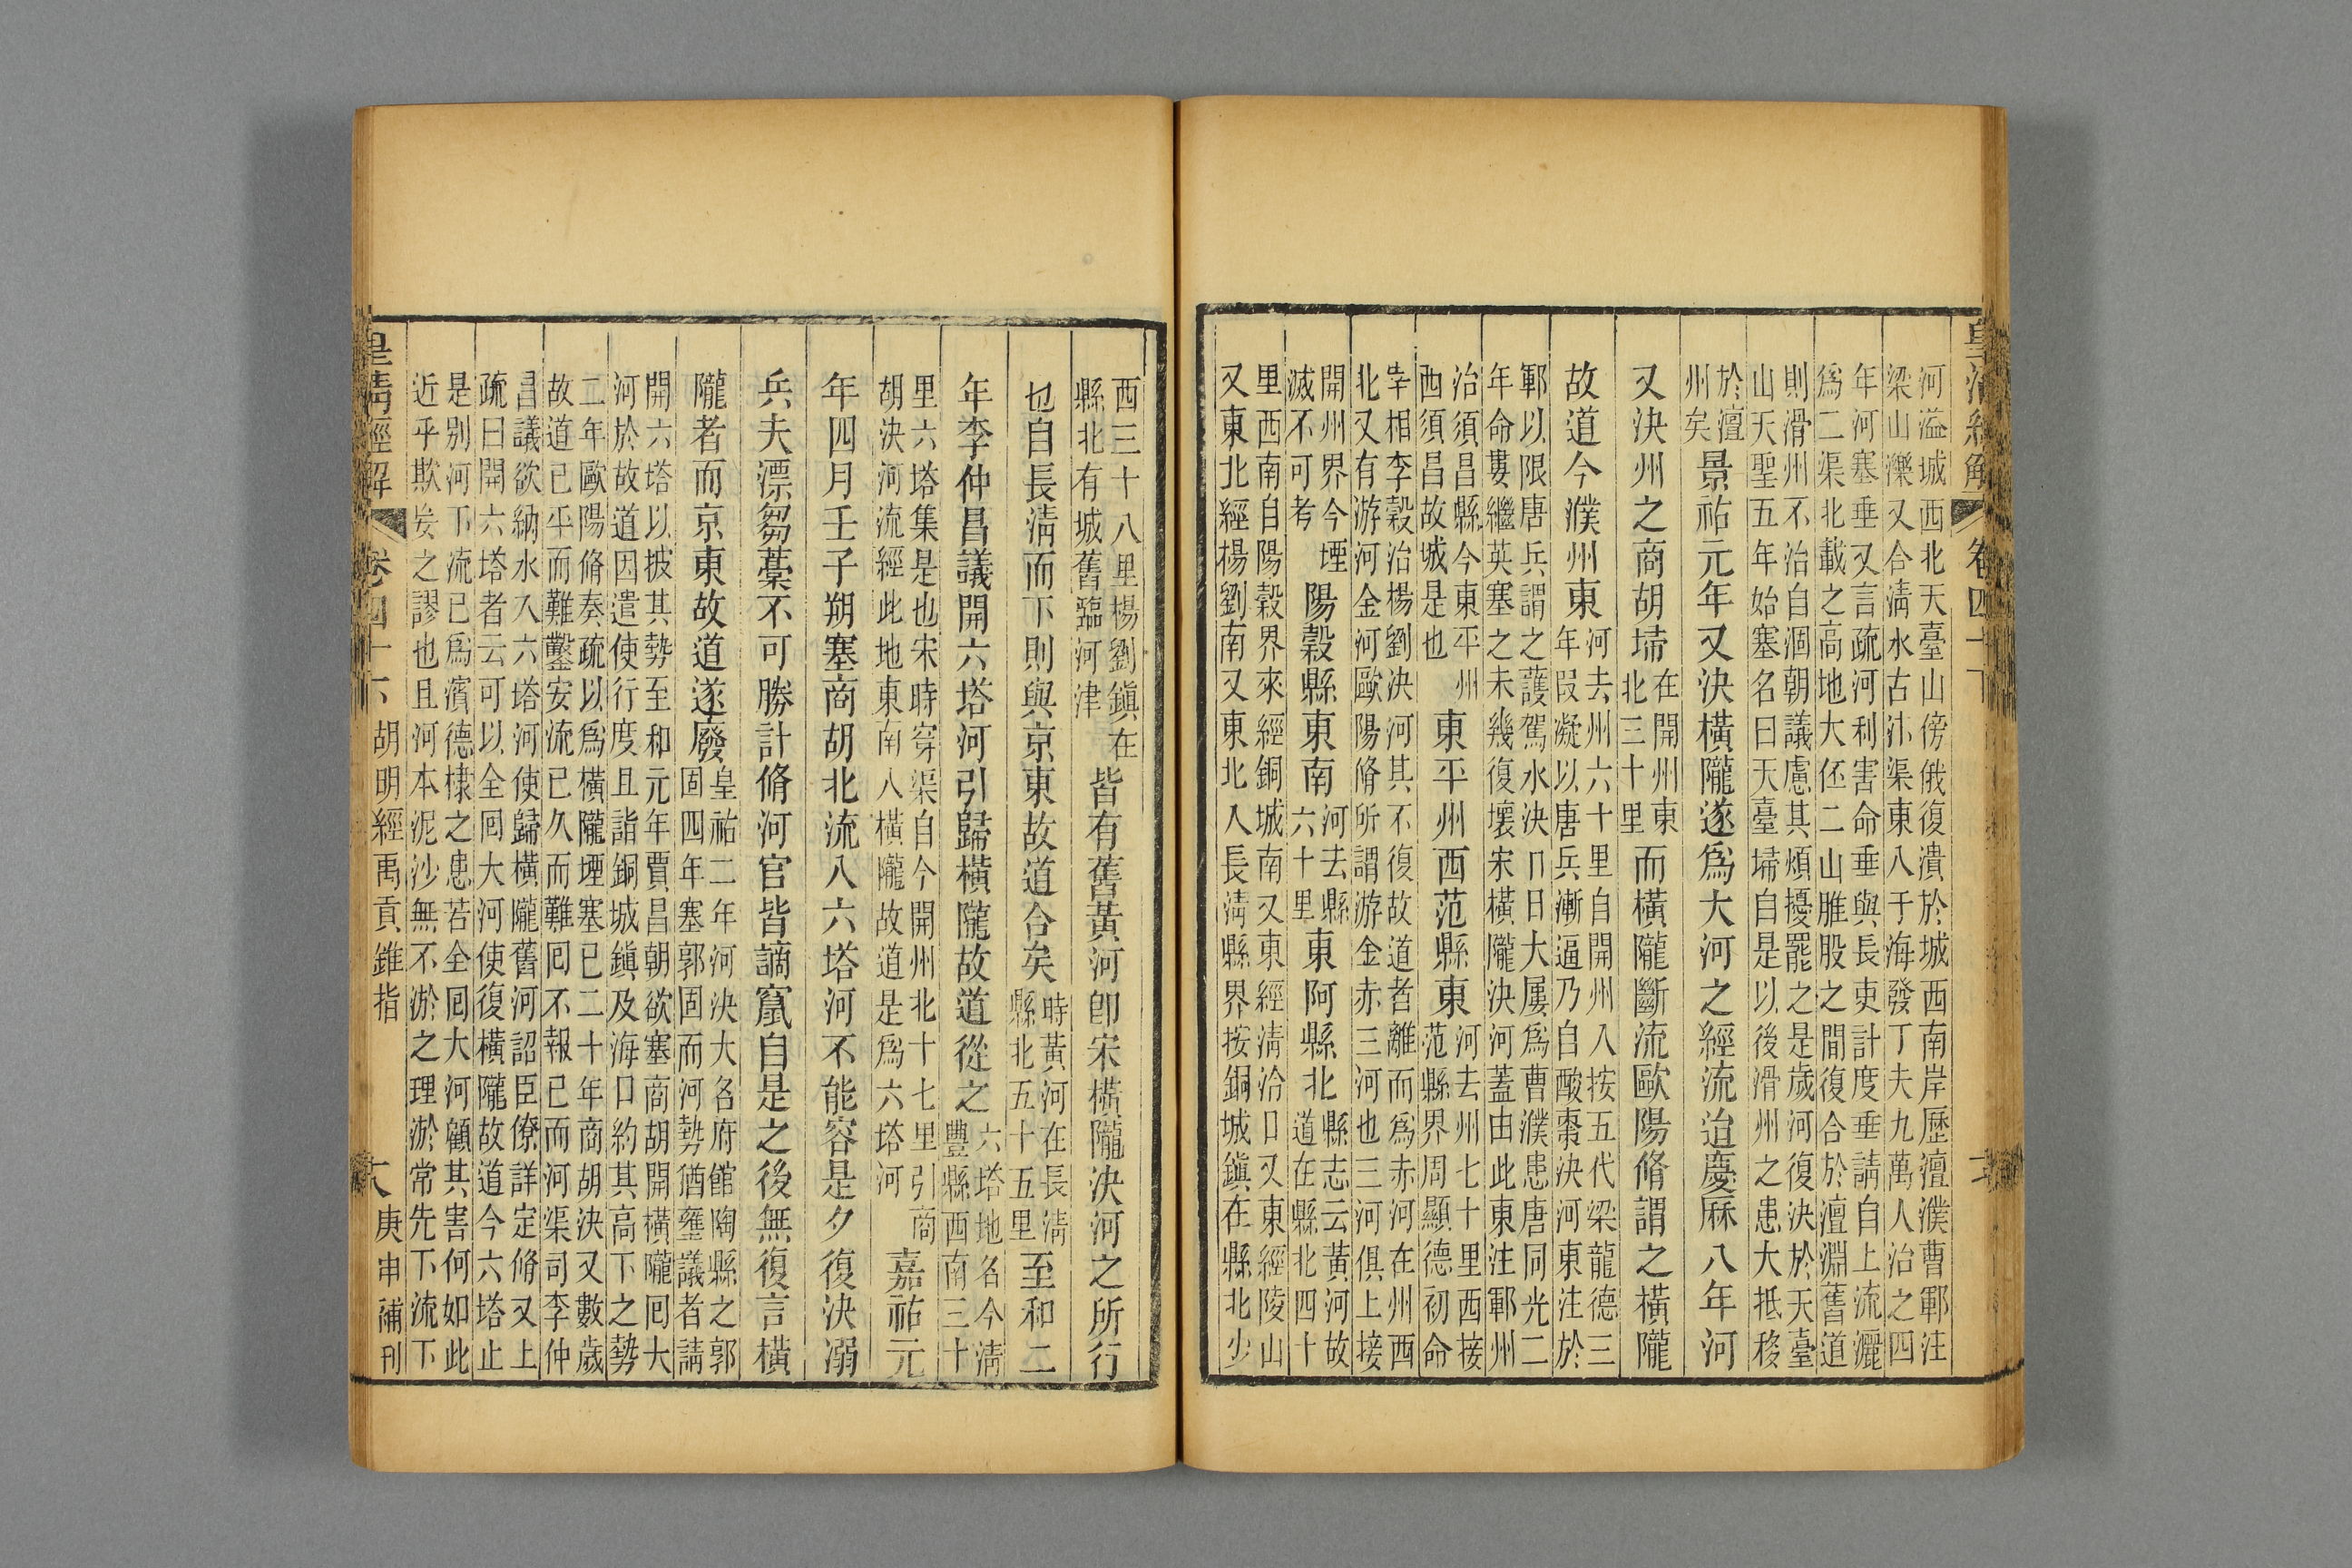 皇清經解 卷四十下
河溢城西北天臺山傍俄復潰於城西南岸歷澶濮曹鄆注
梁山濼又合清水古汴渠東入于海發丁夫九萬人治之四
年河塞垂又言疏河利害命垂與長吏計度垂請自上流灑
爲二渠北載之高地大伾二山脽股之間復合於澶淵舊道
則滑州不治自涸朝議慮其煩擾罷之是歲河復決於天臺
山天聖五年始塞名曰天臺埽自是以後滑州之患大抵移
於澶
州矣景祐元年又決橫隴遂爲大河之經流迨慶厤八年河
又決州之商胡埽在開州東
北三十里而橫隴斷流歐陽脩謂之橫隴
故道今濮州東河去州六十里自開州入按五代梁龍德三
年段凝以唐兵漸逼乃自酸棗決河東注於
鄆以限唐兵謂之護駕水決口日大屢爲曹濮患唐同光二
年命婁繼英塞之未幾復壞宋橫隴決河蓋由此東注鄆州
治須昌縣今東平州
西須昌故城是也東平州西范縣東河去州七十里西接
范縣界周顯德初命
宰相李穀治楊劉決河其不復故道者離而爲赤河在州西
北又有游河金河歐陽脩所謂游金赤三河也三河俱上接
開州界今堙
滅不可考陽穀縣東南河去縣
六十里東阿縣北縣志云黃河故
道在縣北四十
里西南自陽穀界來經銅城南又東經清洽口又東經陵山
又東北經楊劉南又東北入長清縣界按銅城鎮在縣北少
西三十八里楊劉鎮在
縣北有城舊臨河津皆有舊黃河卽宋橫隴決河之所行
也自長清而下則與京東故道合矣時黃河在長清
縣北五十五里至和二
年李仲昌議開六塔河引歸橫隴故道從之六塔地名今清
豐縣西南三十
里六塔集是也宋時穿渠自今開州北十七里引商
胡決河流經此地東南入橫隴故道是爲六塔河嘉祐元
年四月壬子朔塞商胡北流入六塔河不能容是夕復決溺
兵夫漂芻藁不可勝計脩河官皆謫竄自是之後無復言橫
隴者而京東故道遂廢皇祐二年河決大名府館陶縣之郭
固四年塞郭固而河勢猶壅議者請
開六塔以披其勢至和元年賈昌朝欲塞商胡開橫隴回大
河於故道因遣使行度且詣銅城鎮及海口約其高下之勢
二年歐陽脩奏疏以爲橫隴堙塞已二十年商胡決又數歲
故道已平而難鑿安流已久而難回不報已而河渠司李仲
昌議欲納水入六塔河使歸橫隴舊河詔臣僚詳定脩又上
疏曰開六塔者云可以全回大河使復橫隴故道今六塔止
是別河下流已爲濱德棣之患若全回大河顧其害何如此
近乎欺妄之謬也且河本泥沙無不淤之理淤常先下流下
皇清經解 卷四十下 胡明經禹貢錐指 庚申補刊